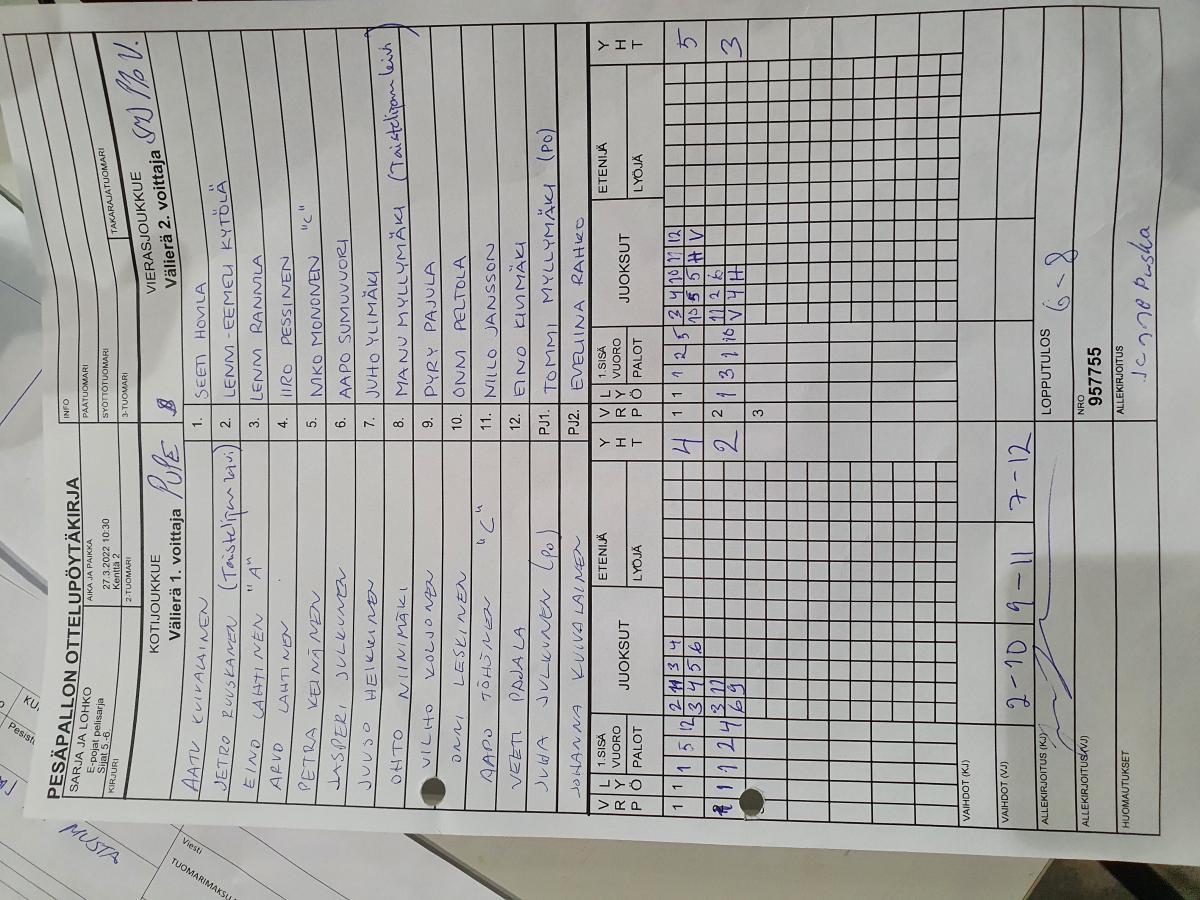 PESÄPALLON OTTELUPÖYTÄKIRJA
SARJA JA LOHKO
E-pojat pelisarja
Sijat 5.-6.
AIKA JA PAIKKA
27.3.2022 10:30
Kenttä 2
INFO
PÄÄTUOMARI
SYÖTTÖTUOMARI
KIRJURI
2-TUOMARI
3-TUOMARI
TAKARAJATUOMARI
KOTIJOUKKUE
Välierä 1. voittaja PUPE
VIERASJOUKKUE
Välierä 2. voittaja
AATU KUIVALAINEN 1. SEETI HOVILA
JETRO RUUSKANEN (Taistelijan kivi) 2. LENNI-EEMELI KYTÖLÄ
EINO LAHTINEN "A" 3. LENNI RANNILA
ARVO LAHTINEN 4. IIRO PESSINEN
PETRA KEINÄNEN 5. NIKO MONONEN "C"
JASPERI JULKUNEN 6. AAPO SUMUVUORI
JUUSO HEIKKINEN 7. JUHO YLIMÄKI
OHTO NIINIMÄKI 8. MANU MYLLYMÄKI
VILHO KOLJONEN 9. PYRY PAJULA
ONNI LESKINEN 10. ONNI PELTOLA
AAPO TÖHÖNEN "C" 11. NIILO JANSSON
VEETI PAJALA 12. EINO KIVIMÄKI
JUKKA JULKUNEN (PO) PJ1. TOMMI MYLLYMÄKI (PO)
JOHANNA KUIVALAINEN PJ2. EVELIINA RAHKO
V L 1.SISÄ JUOKSUT ETENIJÄ Y V L 1.SISÄ JUOKSUT ETENIJÄ Y
R Y VUORO H R Y VUORO H
P Ö PALOT LYÖJÄ T P Ö PALOT LYÖJÄ T
1 1 1 5 12 2 11 3 4 4 1 1 1 2 5 3 4 10 11 12 5
3 4 5 6 10 5 5 H V
1 1 2 4 3 11 2 2 1 3 1 10 11 2 6 3
6 9 V 4 H
3
VAIHDOT (KJ)
VAIHDOT (VJ) 2-10 9-11 7-12
ALLEKIRJOITUS (KJ)
LOPPUTULOS 6-8
ALLEKIRJOITUS(VJ)
NRO
957755
HUOMAUTUKSET
ALLEKIRJOITUS
Puska
MUSTA
Viesti